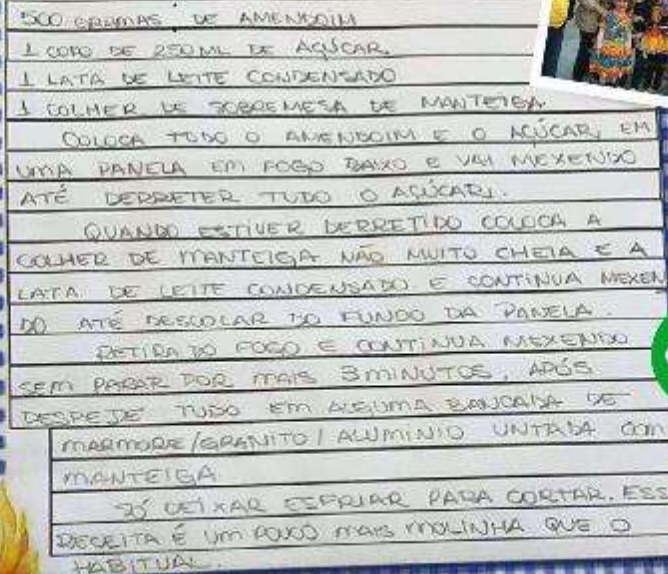 500 GRAMAS DE AMENDOIM
1 COPO DE 250 ML DE AÇÚCAR.
1 LATA DE LEITE CONDENSADO
1 COLHER DE SOBREMESA DE MANTEIGA.
COLOCA TODO O AMENDOIM E O AÇÚCAR, EM
UMA PANELA EM FOGO BAIXO E VAI MEXENDO
ATÉ DERRETER TUDO O AÇÚCAR.
QUANDO ESTIVER DERRETIDO COLOCA A
COLHER DE MANTEIGA NÃO MUITO CHEIA E A
LATA DE LEITE CONDENSADO E CONTINUA MEXEN
DO ATÉ DESCOLAR DO FUNDO DA PANELA.
RETIRA DO FOGO E CONTINUA MEXENDO
SEM PARAR POR MAIS 3 MINUTOS, APÓS
DESPEJE TUDO EM ALGUMA BANCADA DE
MARMORE/GRANITO/ALUMINIO UNTADA COM
MANTEIGA
SÓ DEIXAR ESFRIAR PARA CORTAR. ESS
RECEITA É UM POUCO MAIS MOLINHA QUE O
HABITUAL.